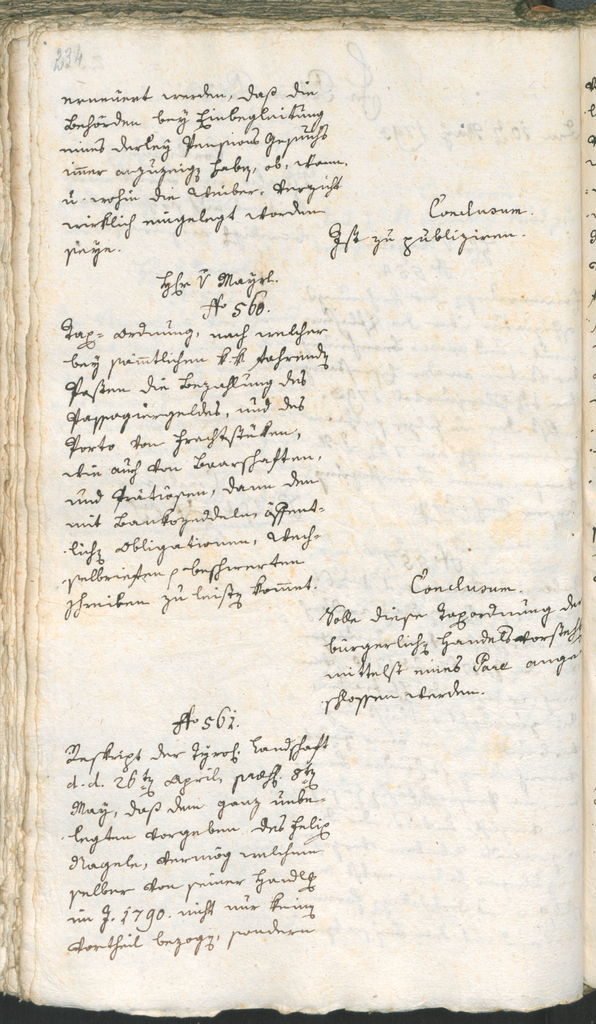 234
erneuert werden, daß die
Behörden bey Einbegleitung
eines derley Pensions Gesuchs
immer anzuzeigen haben, ob, wann,
u. wohin die Weiber-Verzicht
wirklich eingelegt worden
seye.
Conclusum.
Ist zu publiziren.
Hhr v Mayrl.
No 560.
Tax-Ordnung, nach welcher
bey sämmtlichen k.k. fahrenden
Posten die Bezahlung des
Passagiergeldes, und des
Porto von Frachtstüken,
wie auch von Baarschaften,
und Prätiosen, dann den
mit Bankozeddeln, öffent-
lichen Obligationen, Wech-
selbriefen beschwerten
Schreiben zu leisten kommet.
Conclusum.
Solle diese Taxordnung der
bürgerlichen Handelsvorstehung
mittelst eines Pare ange-
schlossen werden.
No 561.
Reskript der Tyrol. Landschaft
d.d. 26ten April, præs. 8ten
May, daß dem ganz unbe-
legten Vorgeben des Felix
Nagele, vermög welchem
selber von seiner Handlung
im J. 1790. nicht nur keinen
Vortheil bezogen, sondern